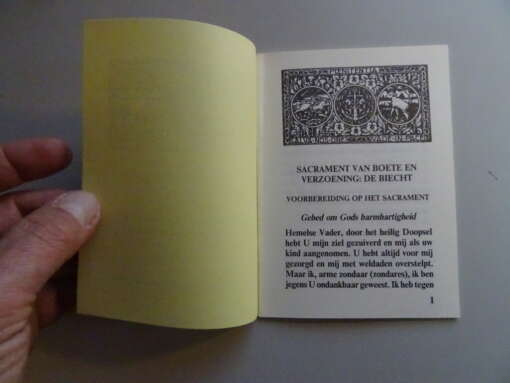 PŒNITENTIA
SACRAMENT VAN BOETE EN
VERZOENING: DE BIECHT
VOORBEREIDING OP HET SACRAMENT
Gebed om Gods barmhartigheid
Hemelse Vader, door het heilig Doopsel
hebt U mijn ziel gezuiverd en mij als uw
kind aangenomen. U hebt altijd voor mij
gezorgd en mij met weldaden overstelpt.
Maar ik, arme zondaar (zondares), ik ben
jegens U ondankbaar geweest. Ik heb tegen
1